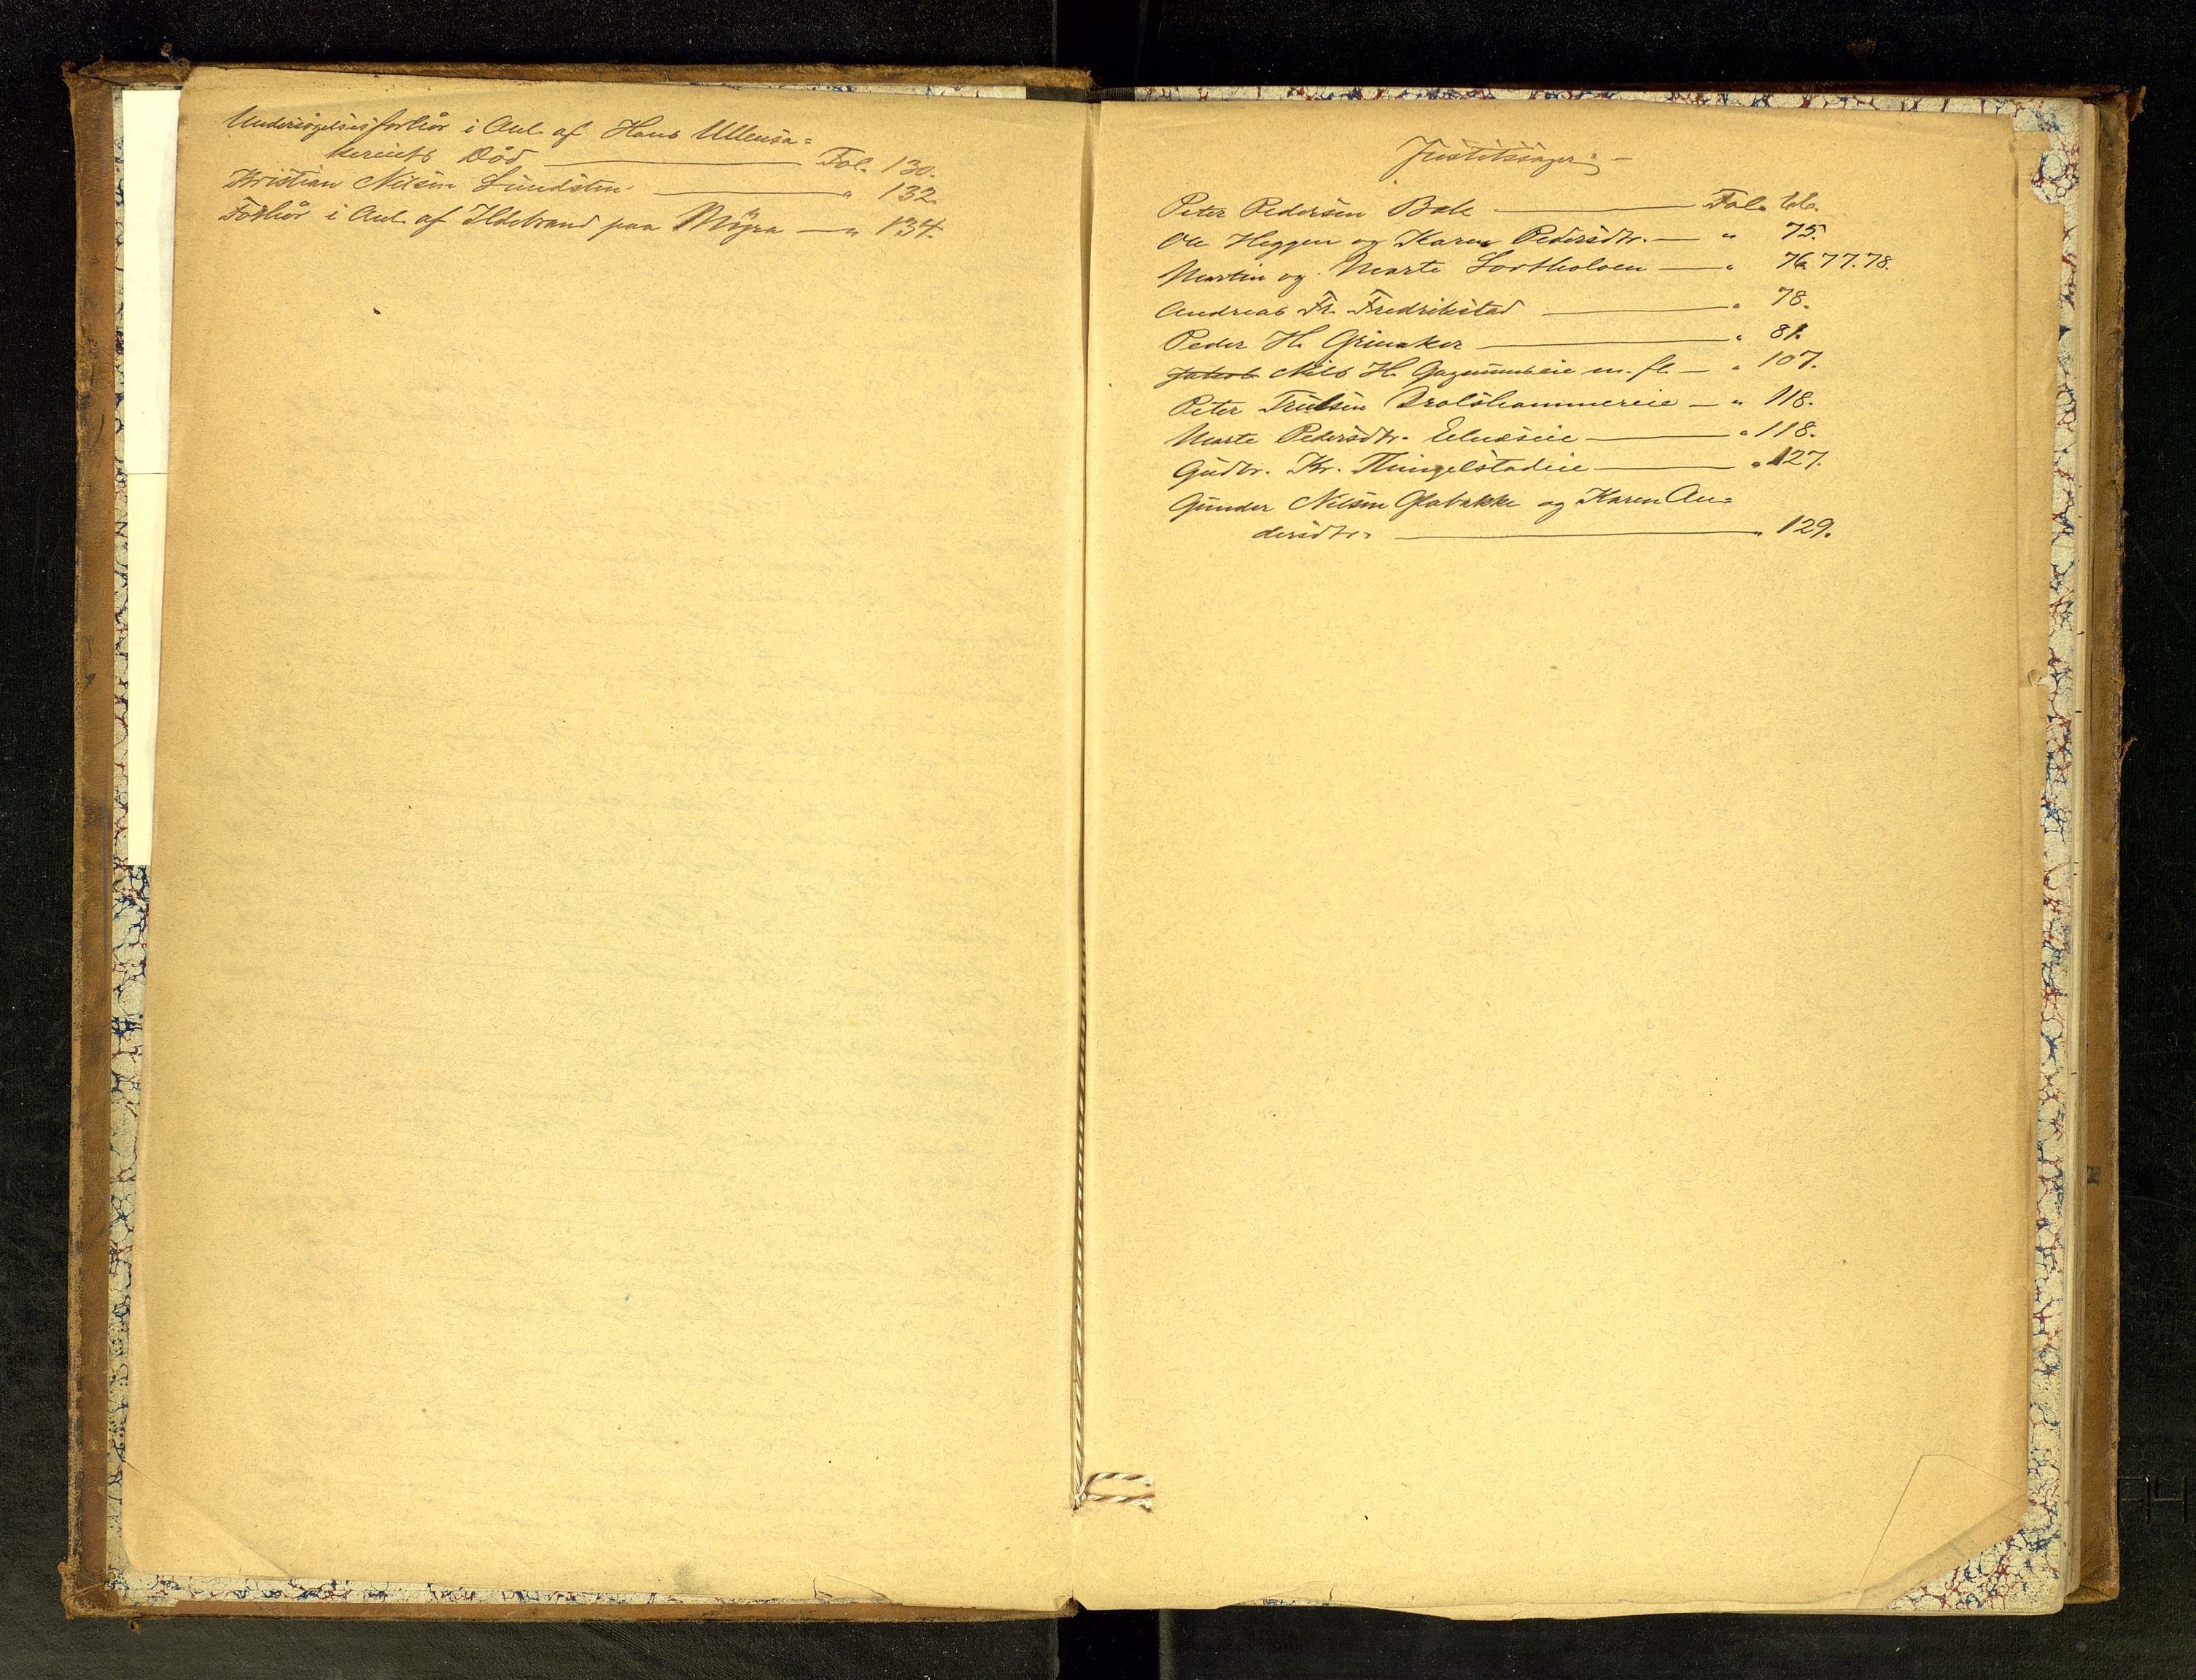 Undersøgelsesforhør i Anl. af Hans Ullensa=
kereiets Død — Fol. 130.
Kristian Nilsen Lundsten — " 132.
Forhør i Anl. af Ildebrand paa Myra — " 134.
Justitssager: —
Peter Pedersen Bak — Fol. 66.
Ole Heggen og Karen Pedersdtr. — " 75.
Martin og Marte Sortholoen — " 76. 77. 78.
Andreas Fr. Fredrikstad — " 78.
Peder H. Grinaker — " 81.
Jakob Nils H. m. fl. — " 107.
Peter Trulsen — " 118.
Marte Pedersdtr. — " 118.
Gudbr. Kr. Thingelstadeie — " 127.
Gunder Nilsen Glabakke og Karen An=
dersdtr. — " 129.